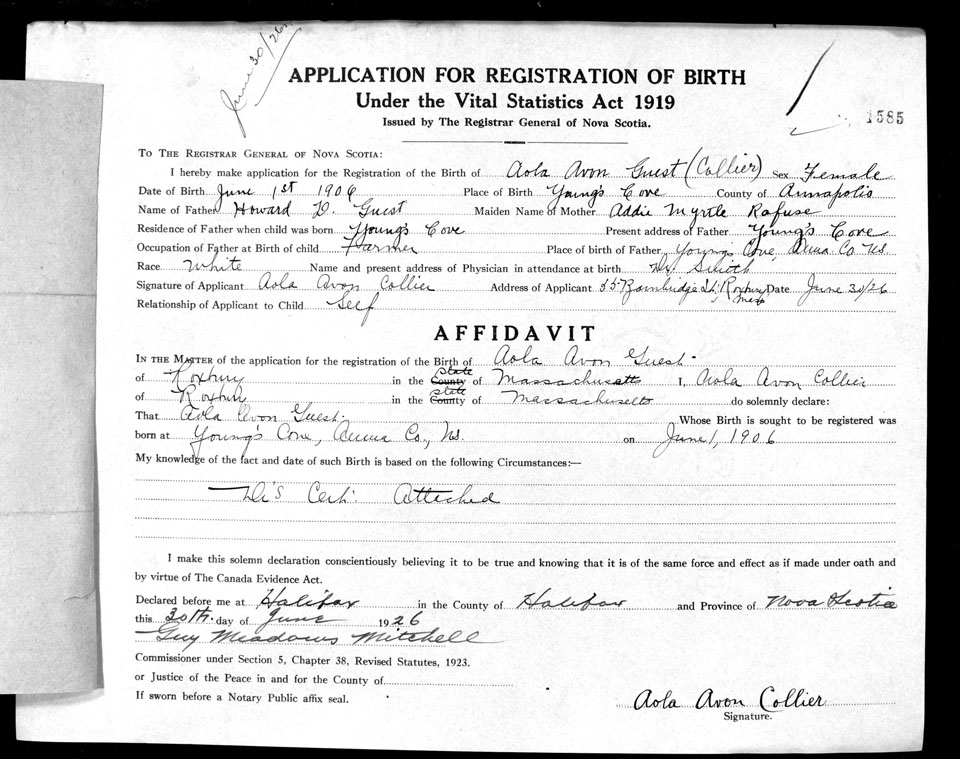 June 30/26
APPLICATION FOR REGISTRATION OF BIRTH
Under the Vital Statistics Act 1919
Issued by The Registrar General of Nova Scotia.
1585
TO THE REGISTRAR GENERAL OF NOVA SCOTIA:
I hereby make application for the Registration of the Birth of Aola Avon Guest (Collier) Sex Female
Date of Birth June 1st 1906 Place of Birth Young's Cove County of Annapolis
Name of Father Howard D. Guest Maiden Name of Mother Addie Myrtle Rafuse
Residence of Father when child was born Young's Cove Present address of Father Young's Cove
Occupation of Father at Birth of child Farmer Place of birth of Father Youngs Cove, Anna. Co NS.
Race White Name and present address of Physician in attendance at birth Dr. Smith
Signature of Applicant Aola Avon Collier Address of Applicant 55 Bainbridge St, Roxbury Mass Date June 30/26
Relationship of Applicant to Child Self
AFFIDAVIT
IN THE MATTER of the application for the registration of the Birth of Aola Avon Guest
of Roxbury in the County state of Massachusetts I, Aola Avon Collier
of Roxbury in the County state of Massachusetts do solemnly declare:
That Aola Avon Guest Whose Birth is sought to be registered was
born at Young's Cove, Anna Co., NS. on June 1, 1906
My knowledge of the fact and date of such Birth is based on the following Circumstances:—
Dr's Cert. Atteched
I make this solemn declaration conscientiously believing it to be true and knowing that it is of the same force and effect as if made under oath and
by virtue of The Canada Evidence Act.
Declared before me at Halifax in the County of Halifax and Province of Nova Scotia
this 30th. day of June 1926
Guy Meadows Mitchell
Commissioner under Section 5, Chapter 38, Revised Statutes, 1923.
or Justice of the Peace in and for the County of
If sworn before a Notary Public affix seal.
Aola Avon Collier
Signature.